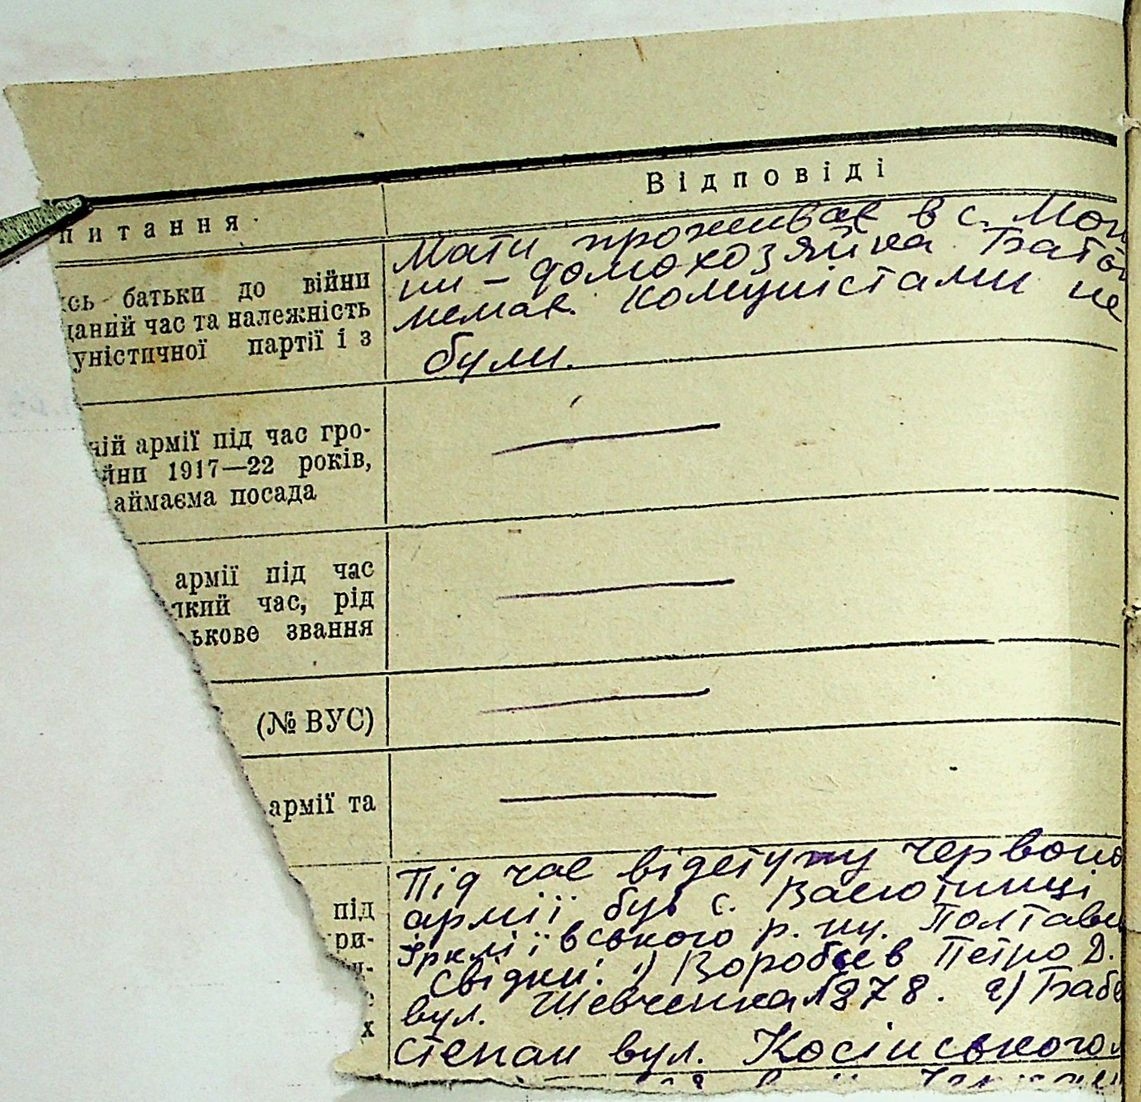 питання
Відповіді
сь батьки до війни
даний час та належність
уністичної партії і з
Мати проживає в с. Мош
ни - домохозяйка Батьк
немає. Комуністами не
були.
ній армії під час гро-
йни 1917—22 років,
аймаєма посада
армії під час
який час, рід
ькове звання
(№ ВУС)
армії та
під
ри-
х
Під час відступу Червоно
армії був с. Васютинці
Іркліївського р. ну. Полтавс
Свідки: 1) Воробєв Петро Д.
вул. Шевченка №878. 2) Баб
Степан вул. Косінського